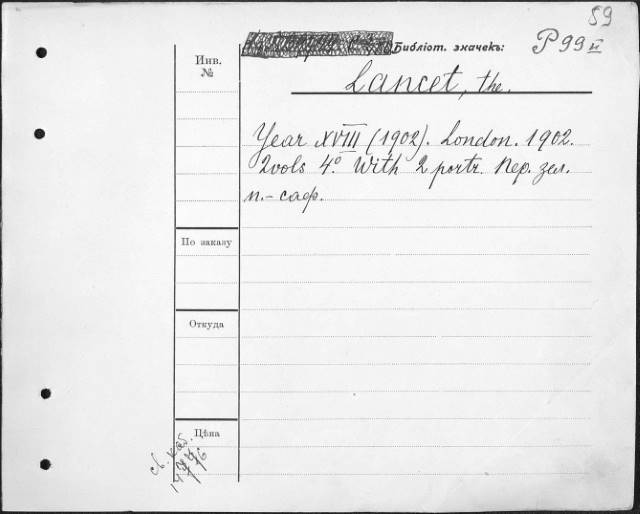 59
Инв.
№
Библіот. значекъ: P 99 II
Lancet, the.
Year XVIII (1902). London. 1902.
2 vols 4º. With 2 portr. Пер. зел.
п.-саф.
По заказу
Откуда
Цѣна